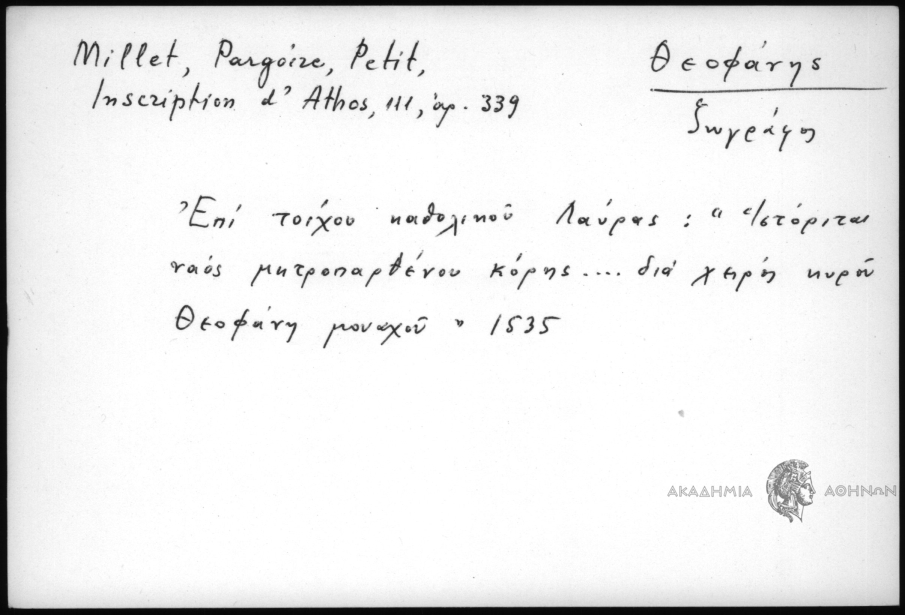 Millet, Pargoire, Petit,
Inscription d' Athos, III, ἀρ. 339
Θεοφάνης
ζωγράφος
Ἐπί τοίχου καθολικοῦ Λαύρας : " Ἱστόριται
ναός μητροπαρθένου κόρης .... διά χειρός κυροῦ
Θεοφάνη μοναχοῦ " 1535
ΑΚΑΔΗΜΙΑ ΑΘΗΝΩΝ